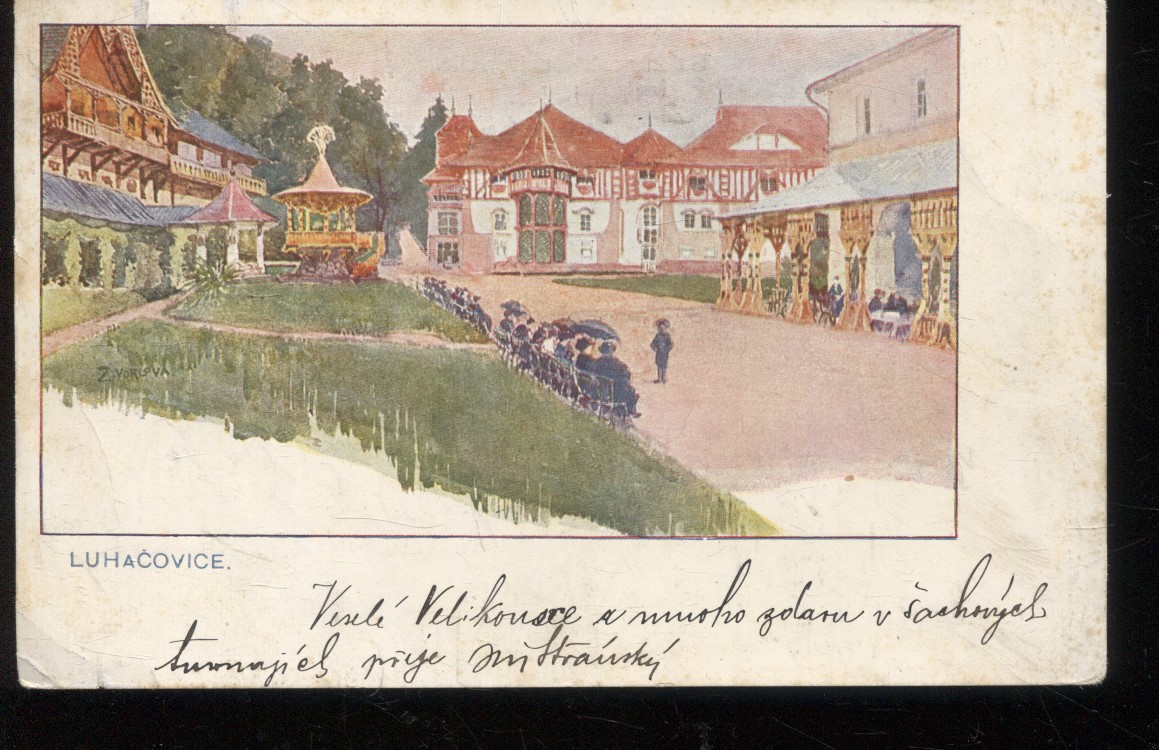 Z. VORLOVÁ
LUHAČOVICE.
Veselé Velikonoce a mnoho zdaru v šachových
turnajích přeje Stránský